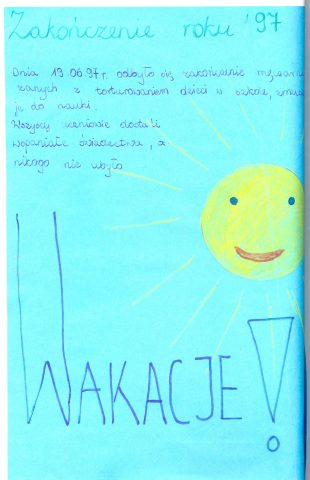 Zakończenie roku '97
Dnia 19.06.97r. odbyło się zakończenie
zanych z torturowaniem dzieci w szkole,
je do nauki.
Wszyscy uczniowie dostali
wspaniałe świadectwa, a
nikogo nie ubyło
WAKACJE!